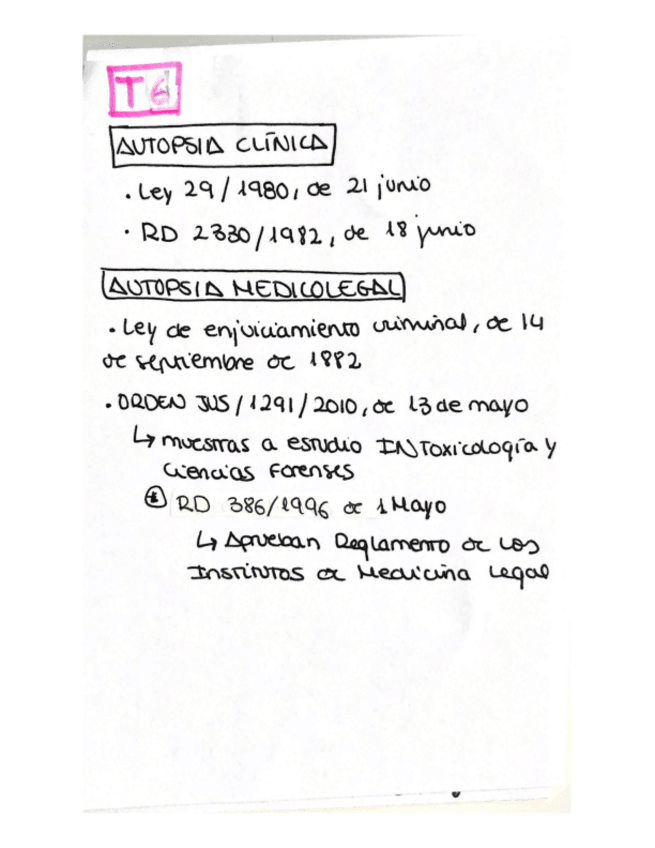 T6
AUTOPSIA CLÍNICA
· Ley 29/1980, de 21 junio
· RD 2330/1982, de 18 junio
AUTOPSIA MEDICOLEGAL
· Ley de enjuiciamiento criminal, de 14
de septiembre de 1882
· ORDEN JUS/1291/2010, de 13 de mayo
↳ muestras a estudio IN Toxicología y
Ciencias Forenses
* RD 386/1996 de 1 Mayo
↳ Aprueban Reglamento de los
Institutos de Medicina Legal